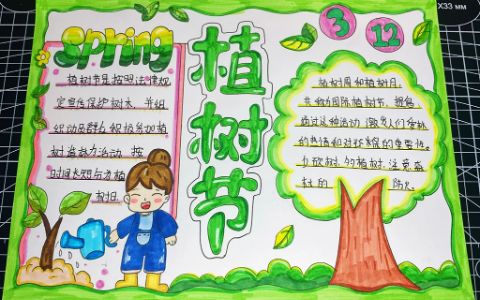 X33 MM
Spring
3
12
植树节
植树节是按照法律规
定宣传保护树木，并组
织动员群众积极参加植
树造林为活动 按
时间长短可分为植
树日
植树周和植树月，
共称为国际植树节，提倡
通过这种活动，激发人们爱林
的热情和对环境的重要性
树 的植树 注意森
林的 防火。